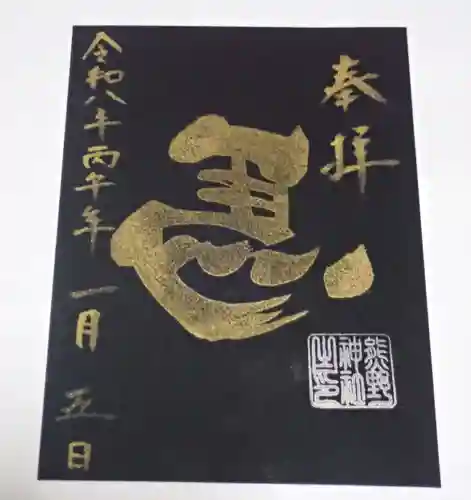 奉拝
熊野
神社
之印
令和八年丙午年 一月 五日